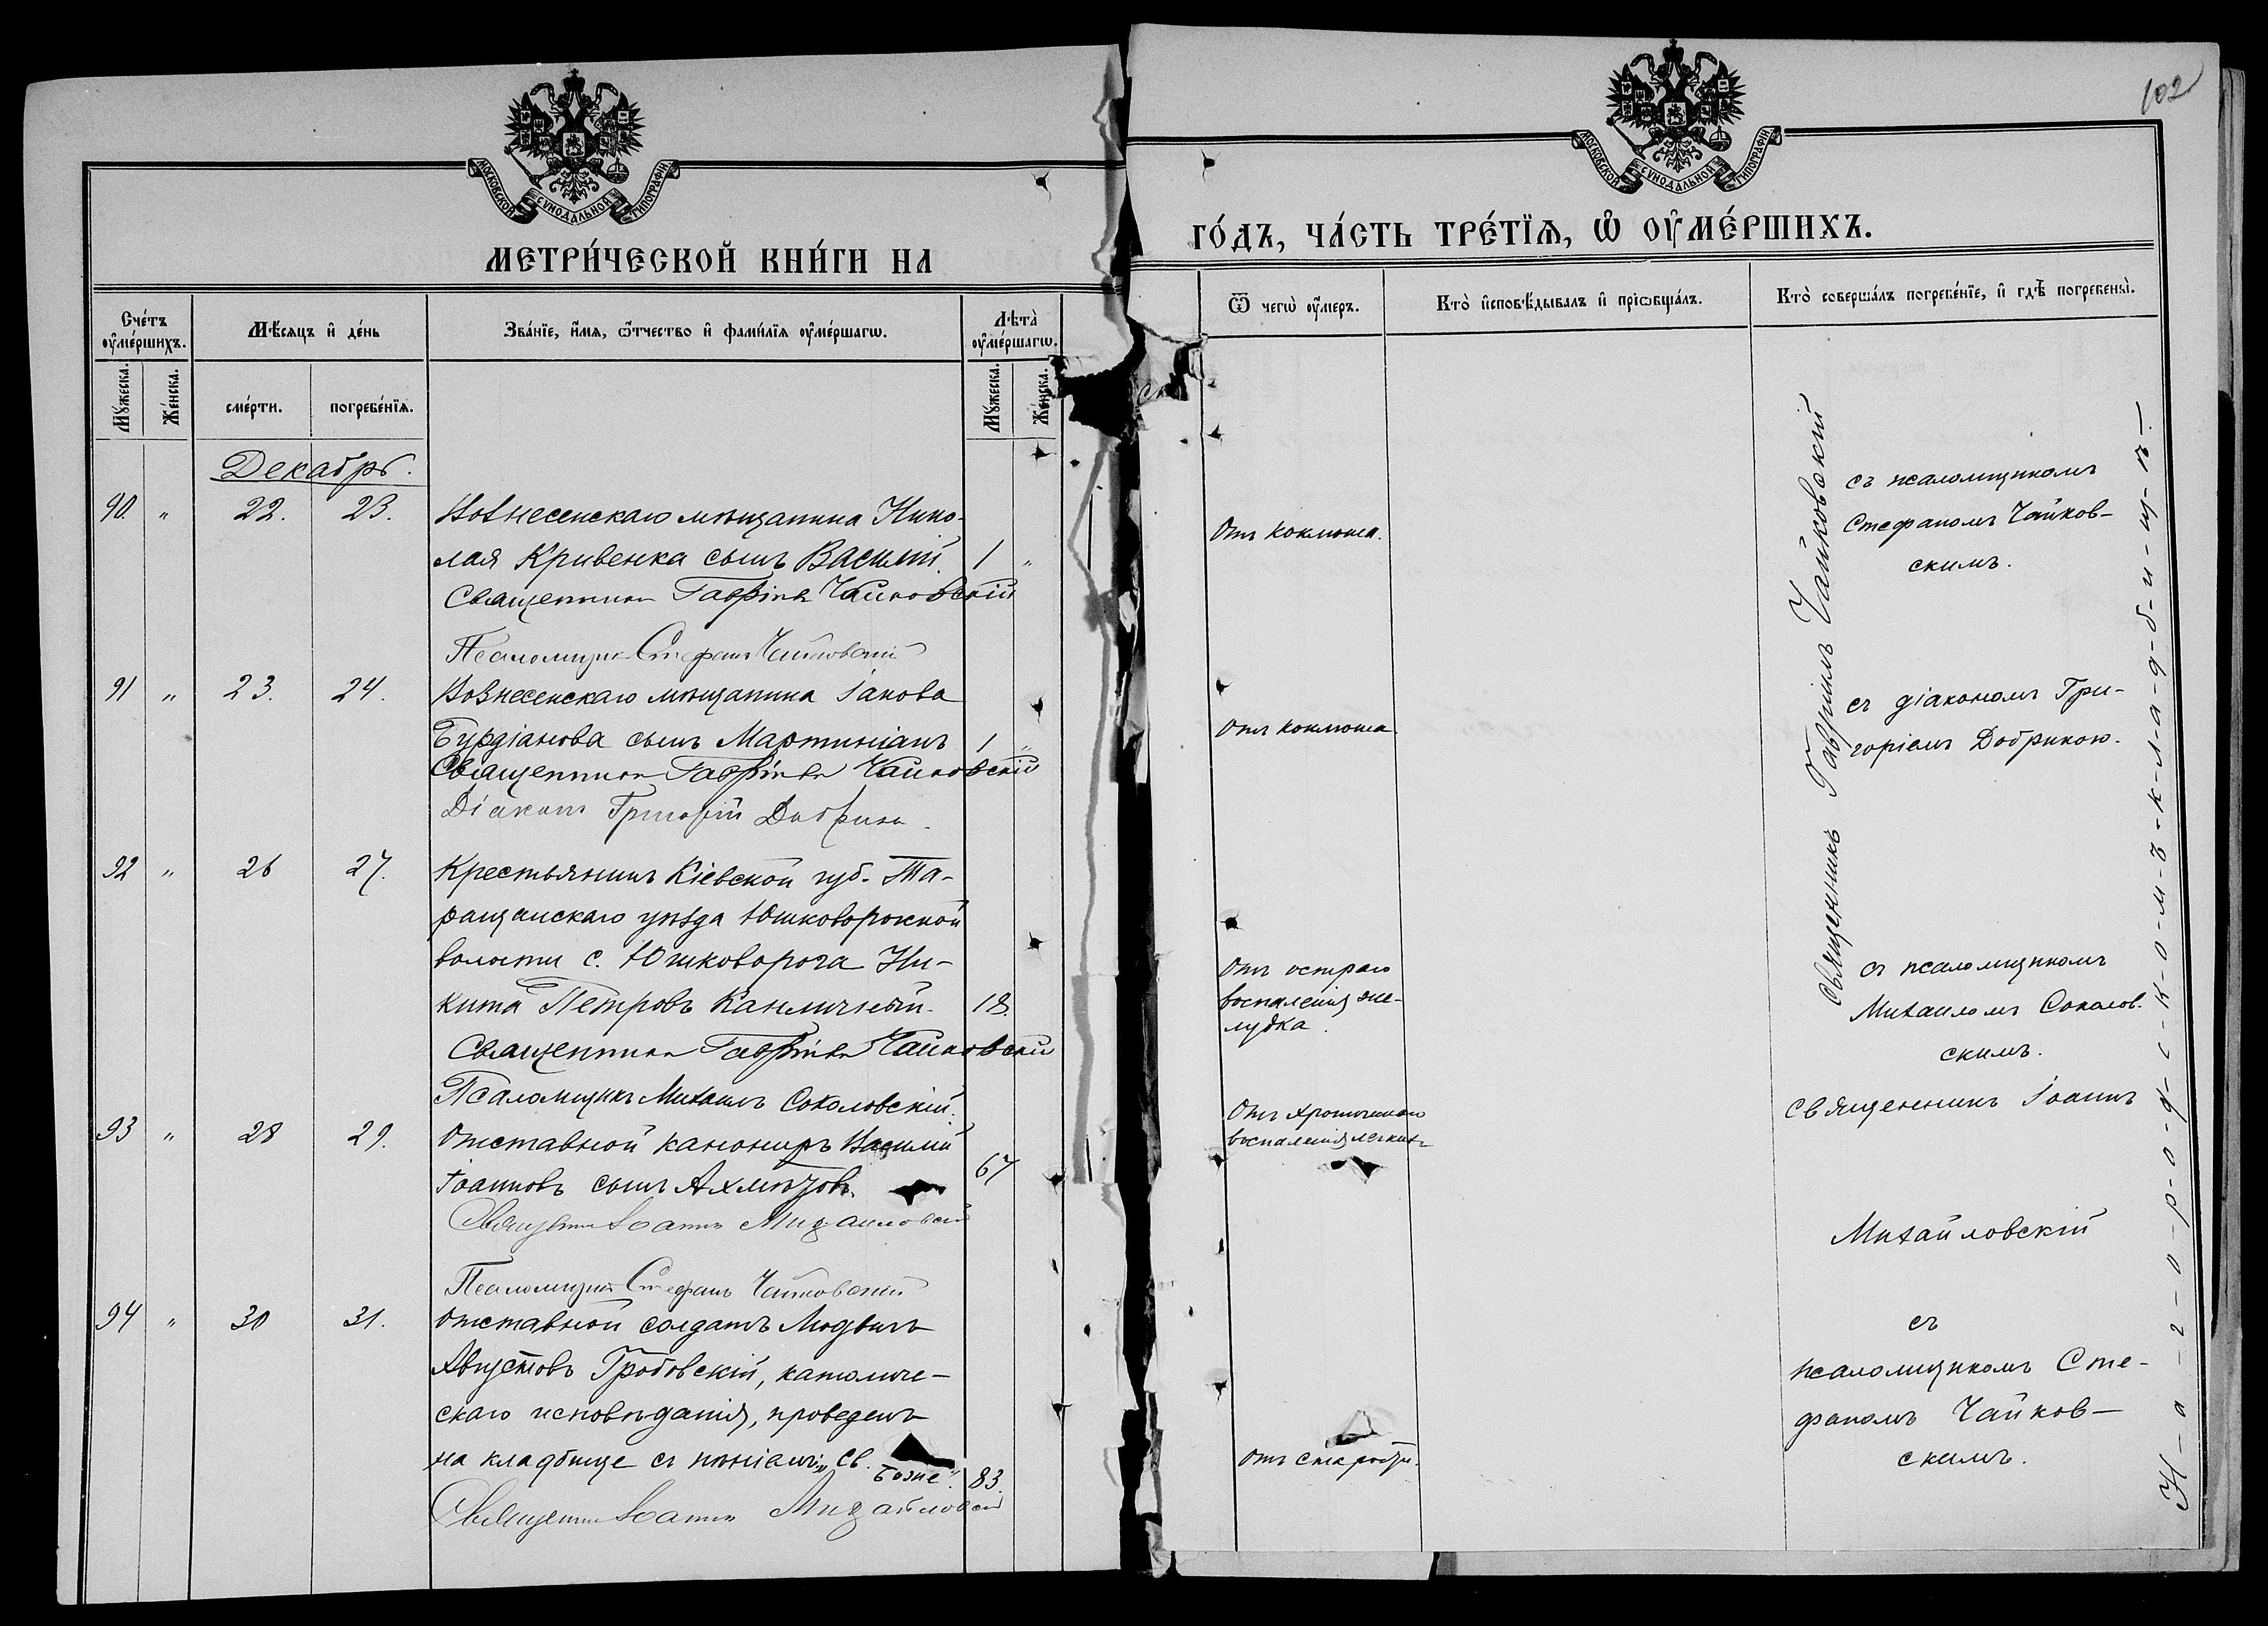 102
МОСКОВСКОЙ СѴНОДАЛЬНОЙ ТИПОГРАФІИ
МОСКОВСКОЙ СѴНОДАЛЬНОЙ ТИПОГРАФІИ
МЕТРИ́ЧЕСКОЙ КНИ́ГИ НА
ГО́ДЪ, ЧА́СТЬ ТРЕ́ТЇѦ, Ѡ ОУ҆МЕ́РШИХЪ.
Сче́тъ оу҆ме́ршихъ.
Мѣ́сяцъ и҆ де́нь
Зва́нїе, и҆́мя, ѻ҆́тчество и҆ фами́лїя оу҆ме́ршагѡ.
Лѣта̀ оу҆ме́ршагѡ.
Ѿ чегѡ̀ оу҆́меръ.
Кто̀ и҆сповѣ́дывалъ и҆ прїѡбща́лъ.
Кто̀ соверша́лъ погребе́нїе, и҆ гдѣ̀ погребены̀.
Мꙋ́жеска.
Же́нска.
сме́рти.
погребе́нїѧ.
Мꙋ́жеска.
Же́нска.
Декабрь.
90. " 22. 23. Вознесенскаго мѣщанина Нико-
лая Кривенка сынъ Василій. 1 "
Священникъ Гавріилъ Чайковскій
Псаломщикъ Стефанъ Чайковскій
Отъ коклюша.
съ псаломщикомъ
Стефаномъ Чайков-
скимъ.
91 " 23. 24. Вознесенскаго мѣщанина Іакова
Бурдіанова сынъ Мартиніанъ 1 "
Священникъ Гавріилъ Чайковскій
Діаконъ Григорій Добрика.
Отъ коклюша.
съ діакономъ Гри-
горіемъ Добрикою.
92 " 26 27. Крестьянинъ Кіевской губ. Та-
ращанскаго уѣзда Юшковорожной
волости с. Юшковорога Ни-
кита Петровъ 18.
Священникъ Гавріилъ Чайковскій
Псаломщикъ Михаилъ Соколовскій.
Отъ остраго
воспаленія же-
лудка.
съ псаломщикомъ
Михаиломъ Соколов-
скимъ.
93 " 28 29. Отставной канониръ Василій
Іоанновъ сынъ Ахмѣтовъ. 67
Священникъ Іоаннъ Михайловскій
Псаломщикъ Стефанъ Чайковскій
Отъ хроническаго
воспаленія легкихъ
Священникъ Іоаннъ
Михайловскій
94 " 30 31. Отставной солдатъ Людвигъ
Августовъ Гробовскій, католиче-
скаго исповѣданія, проведенъ
на кладбище съ пѣніемъ: „Св.
Боже". 83.
Священникъ Іоаннъ Михайловскій
Отъ старости.
съ
псаломщикомъ Сте-
фаномъ Чайков-
скимъ.
Священникъ Гавріилъ Чайковскій
Н-а-г-о-р-о-д-с-к-о-м-ъ-к-л-а-д-б-и-щ-ѣ-